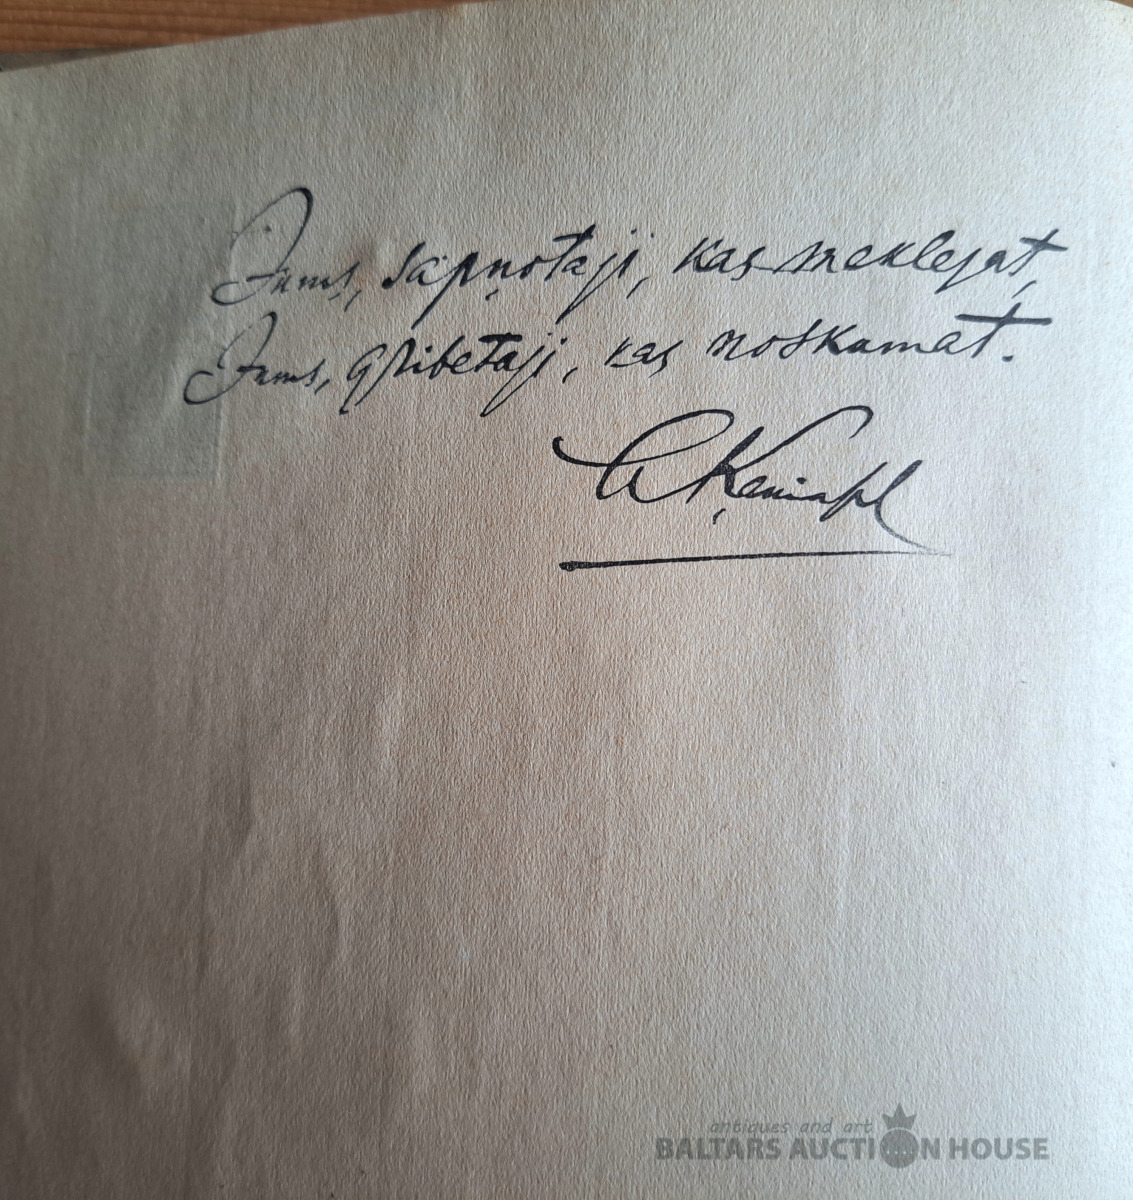 Jums, sapņotāji, kas meklējat,
Jums, gribētāji, kas noskumāt.
antiques and art
BALTARS AUCTION HOUSE